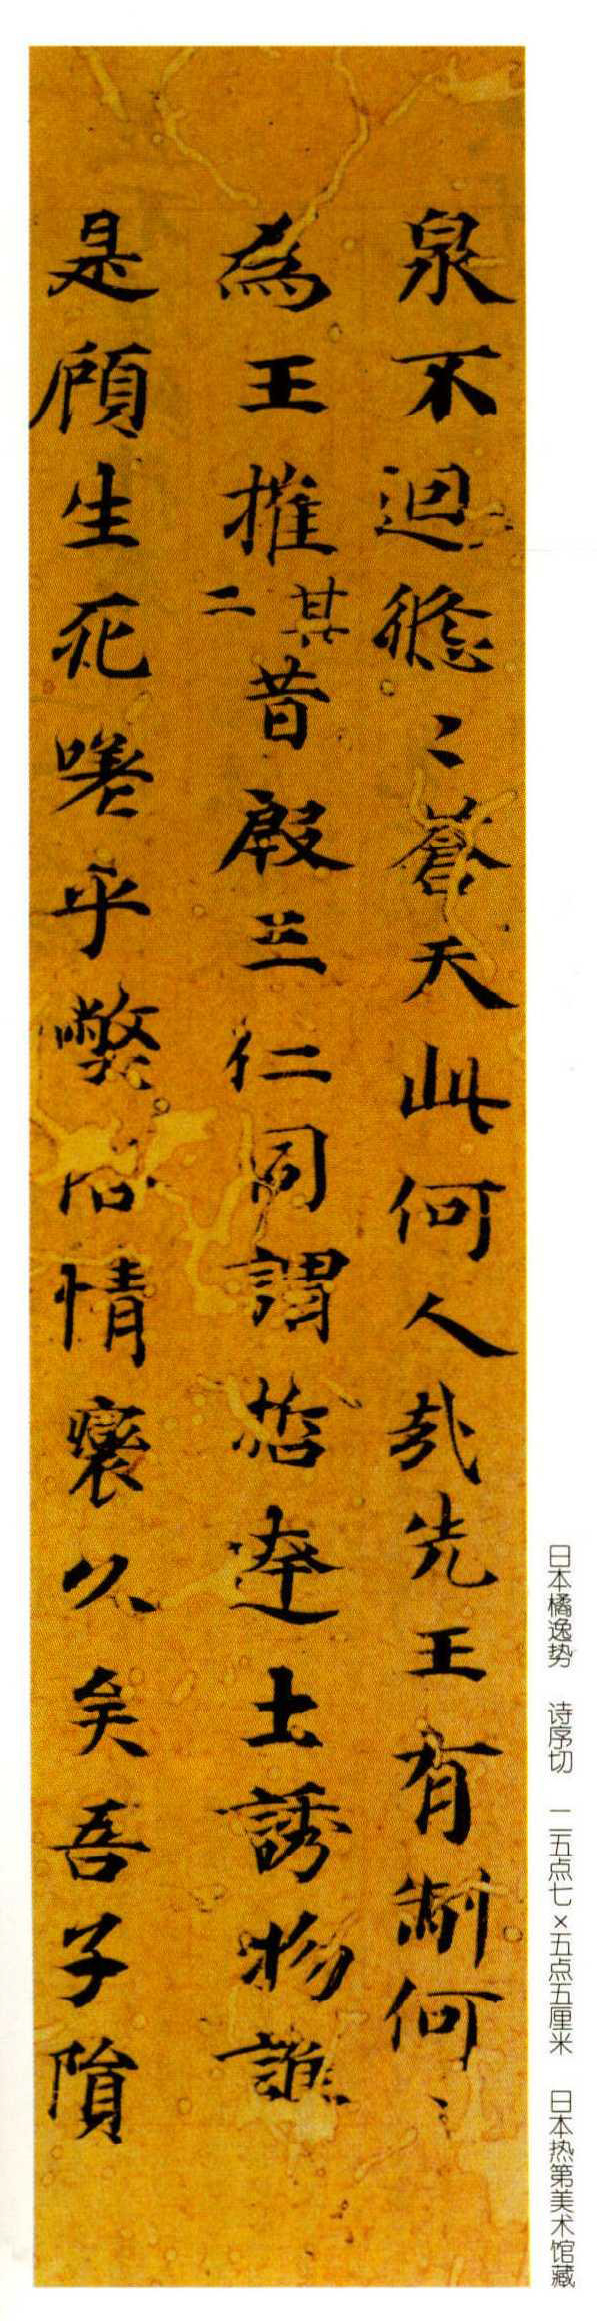 泉不迴悠〻蒼天此何人哉先王有制何〻
為王摧其二昔殷三仁同謂哲達士誘物誰
是顧生死嗟乎弊 情襄久矣吾子隕
日本橘逸势 诗序切 二五点七×五点五厘米 日本热第美术馆藏